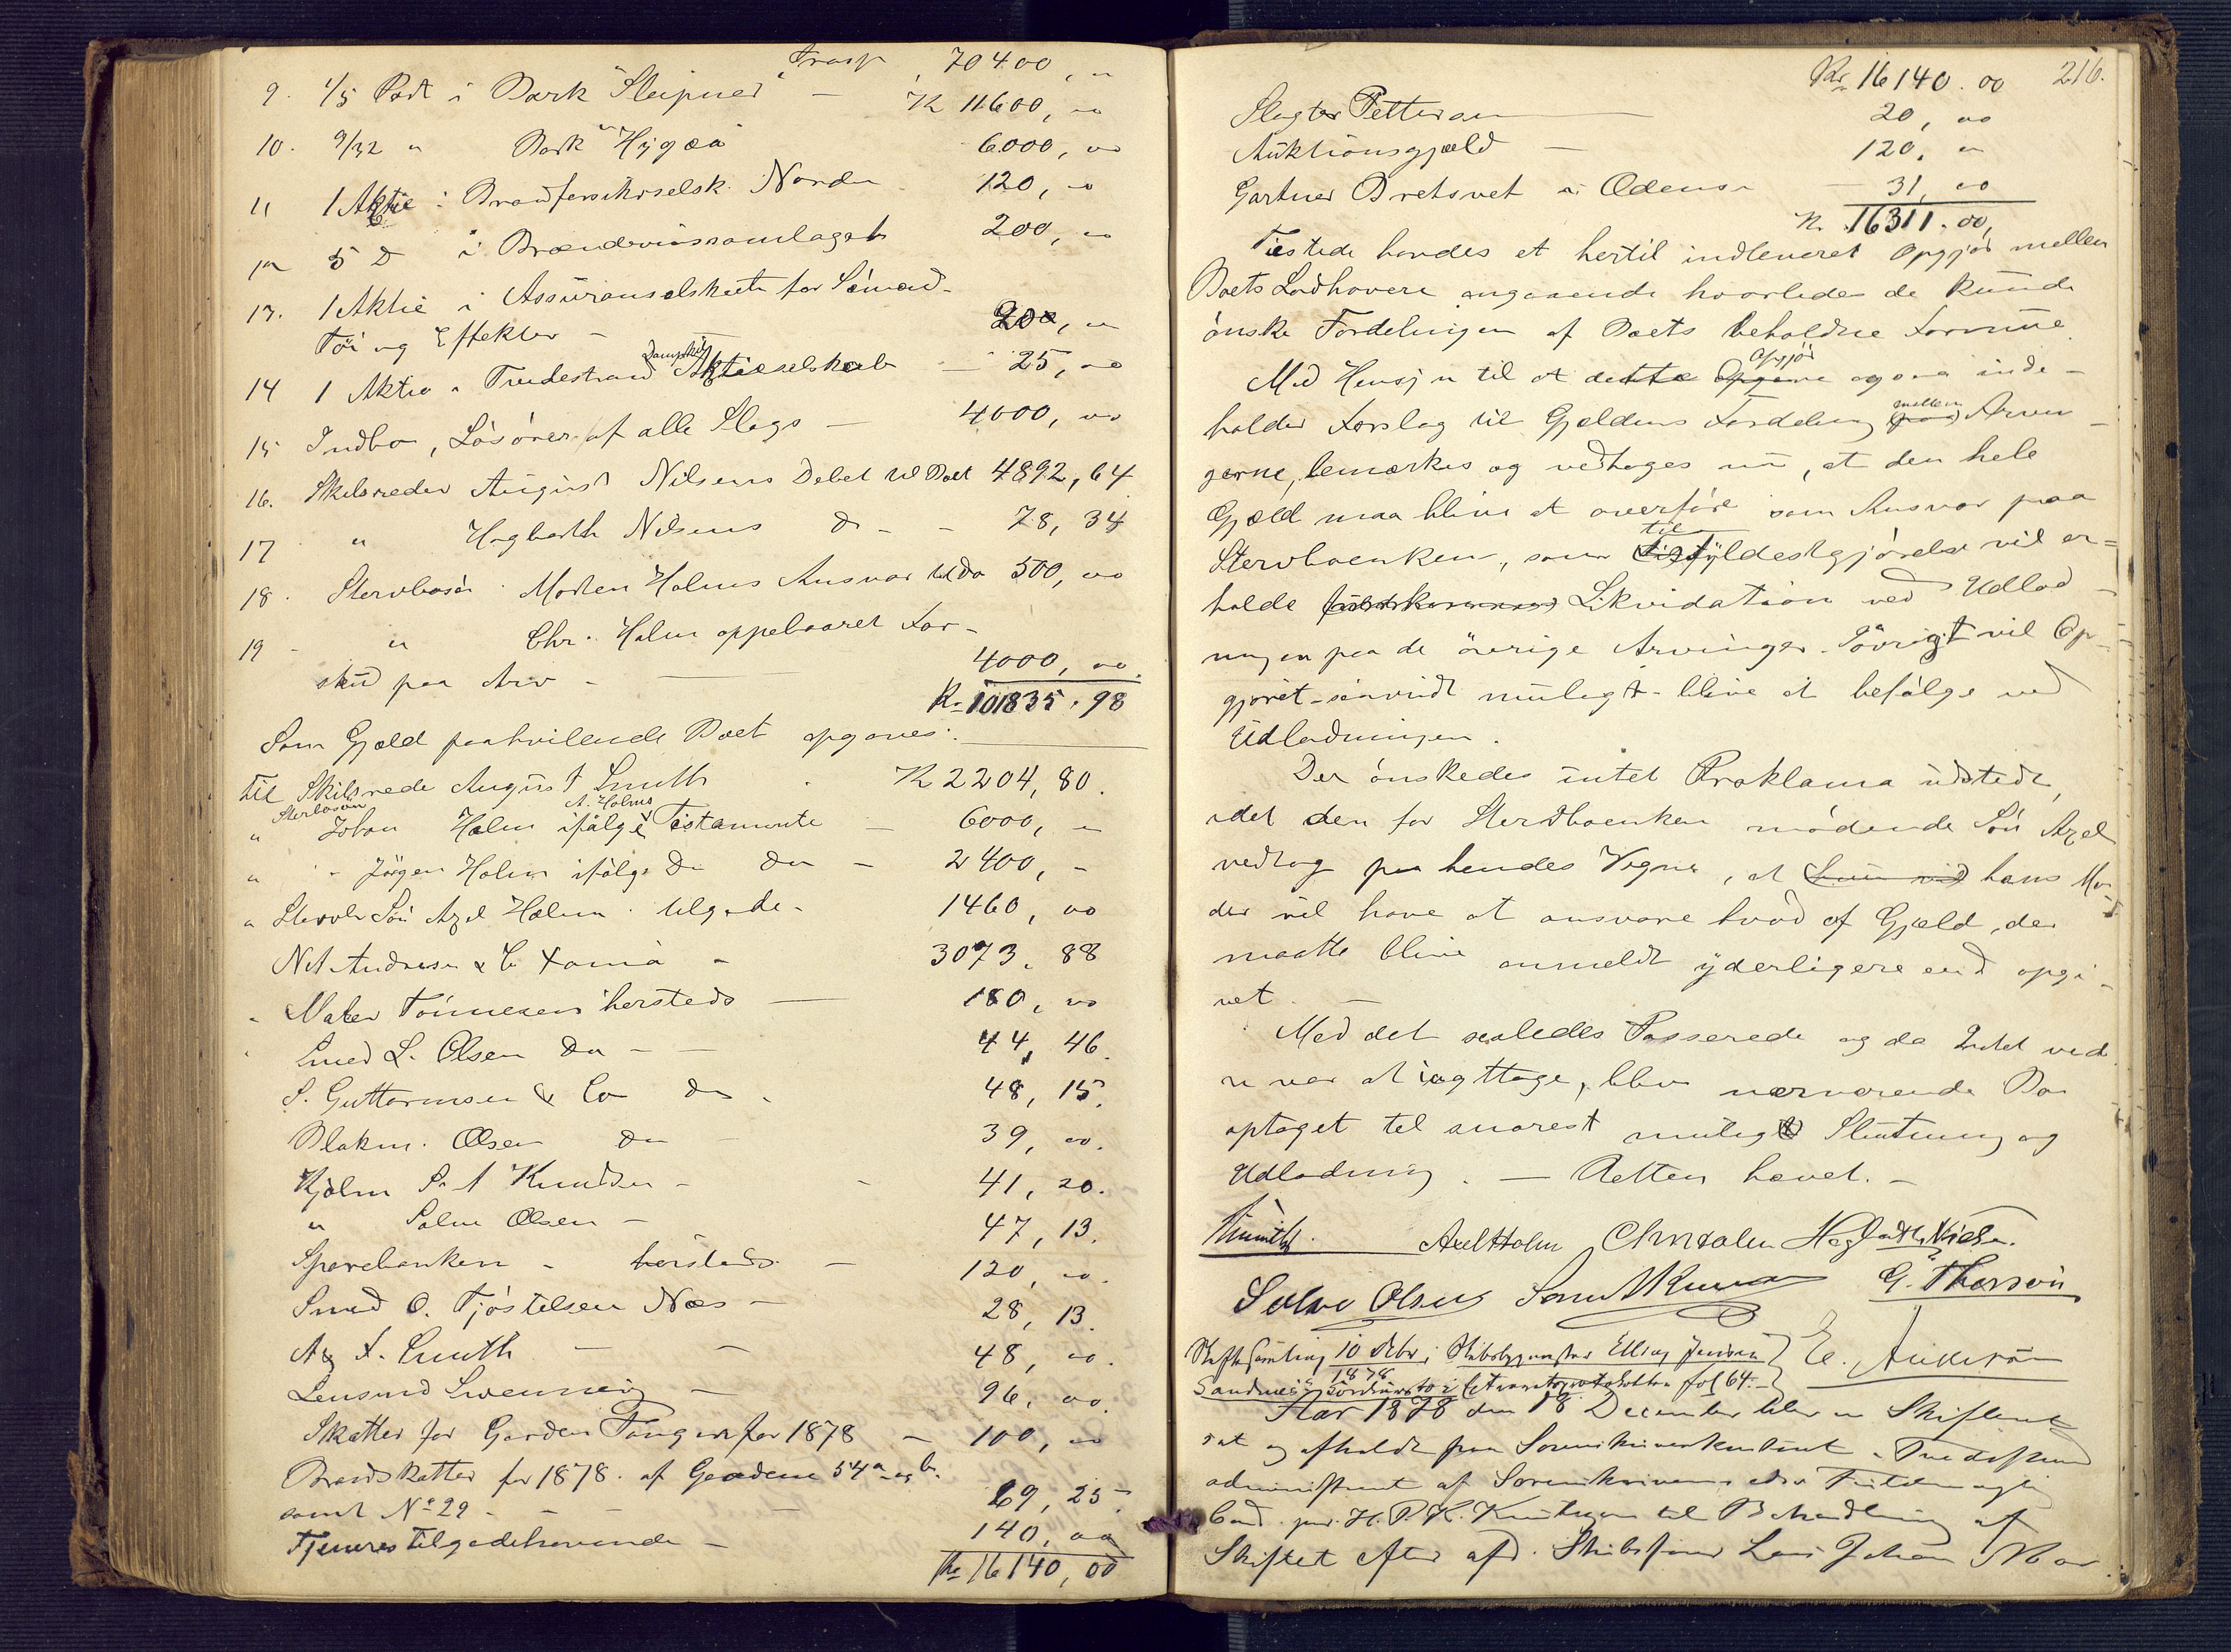 Trasp 70400, "
9. 1/5 Part i Bark "Sleipner" — Kr 11600, 00
10. 9/32 " Bark "Hygæa" 6000, 00
11 1 Aktie i Brandforsikrselsk. Norden 120, 00
12 5 Do i Brændevinssamlaget 200, 00
13. 1 Aktie i Assuranseselskabet for Sömænds
Töi og Effekter — 200, "
14 1 Aktie i Tvedestrand Dampskibs Aktieselskab — 25, 00
15 Indbo, Lösöre af alle Slags — 4000, 00
16. Skibsreder August Nilsens Debet til Boet 4892, 64
17 " Hagbarth Nilsens Do — 78, 34
18. Stervbosön Morten Holms Ansvar til do 500, 00
19 " Chr. Holm oppebaaret For-
skud paa Arv — 4000, 00
Kr. 101835. 98
Som Gjæld paahvilende Boet opgaves:
Til Skibsreder August Smith Kr 2204, 80.
" Sterbosön Johan Holm ifölge A. Holms Testamente — 6000, "
" " Jörgen Holm ifölge Do Do — 2400, "
" Stervb Sön Axel Holm tilgode — 1460, 00
N A Andresen & C — 3073. 88
" Maler Tönnesen hersteds — 180, 00
Smed L. Olsen Do — 44, 46.
S. Guttormsen & Co Do. 48, 15.
Blokm. Olsen Do — 39, 00.
Kjöbm S. A Knudsen — 41, 20.
" Salve Olsen — 47, 13.
Sparebanken — hersteds — 120, 00.
Smed O. Tjöstelsen Næs — 28, 13.
Ax F. Smith — 48, 00.
Lensmd Svenning — 96, 00.
Skatter for Gaarden Tangen for 1878 — 100, 00
Brandskatter for 1878 af Gaardene 54a og b.
samt No 29 — 69, 25.
Tjeneres Tilgodehavende — 140, 00
Kr 16140, 00
Kr 16140. 00 216.
Slagter Pettersen — 20, 00
Auktionsgjæld — 120, "
Gartner Bretsvet i Odense — 31, 00
Kr. 16311. 00,
Tilstede havdes et hertil indleveret Opgjör mellem
Boets Lodhavere angaaende hvorledes de kunde
önske Fordelingen af Boets beholdne Formue.
Med Hensyn til at dette Opgjör ogsaa inde-
holder Forslag til Gjældens Fordeling mellem Arvin-
gerne, bemærkes og vedtoges nu, at den hele
Gjæld maa blive at overföre som Ansvar paa
Stervboenken, som til Fyldestgjörelse vil er-
holde Likvidation ved Udlod-
ningen paa de övrige Arvinger. Iövrigt vil Op-
gjöret - saavidt muligt - blive at befölge ved
Udlodningen.
Der önskedes intet Proklama udstedt,
idet den for Stervboenken mödende Sön Axel
vedtog paa hendes Vegne, at hans Mo-
der vil have at ansvare hvad af Gjæld, der
maatte blive anmeldt yderligere end opgi-
vet. —
Med det saaledes Passerede og da Intet vide-
re var at iagttage, blev nærværende Bo
optaget til snarest muligt Slutning og
Udlodning. — Retten hævet. —
Smith. Axel Holm Chr Holm Hagbarth Nielsen.
Salve Olsen G. Thorsön
Skifte Samling 10 Debr i Skibsbygmester Elling Jensen
1878
Sandnes fol 64.
Aar 1878 den 18 December blev en Skifteret
sat og afholdt paa Sorenskriverkontoret i Tvedestrand
administreret af Sorenskriverens edsv Fuldmægtig
Cand. jur. H. P. K. til Behandling af
Skiftet efter afd. Skibsförer Johan